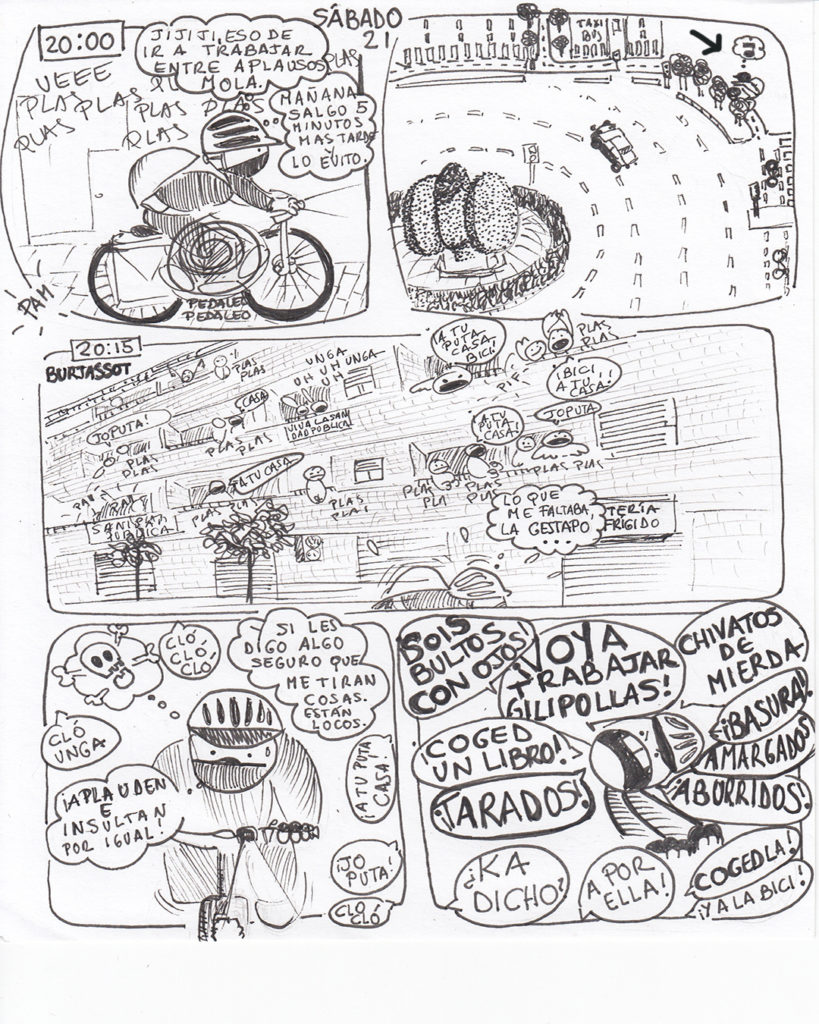 SÁBADO
21
20:00
JIJIJI, ESO DE
IR A TRABAJAR
ENTRE APLAUSOS
MOLA.
MAÑANA
SALGO 5
MINUTOS
MAS TARDE
Y
LO EVITO.
UEEE
PLAS
PLAS PLAS
PLAS
PLAS
PLAS
PLAS
PLAS
PEDALEO
PEDALEO
PAM
TAXI
BUS
20:15
BURJASSOT
¡A TU
PUTA
CASA
BICI!
PLAS
PLAS
¡BICI
A TU
CASA!!
PLAS
PLAS
UNGA
UH UH UNGA
UH
¡JOPUTA!
CASA
PLAS
PLAS
VIVA LA SANI
DAD PUBLICA
JOPUTA
¡A TU
PUTA
CASA!
PLAS
PLAS
PLAS PLAS
PLAS
PLAS
¡A TU CASA
PLAS
PLAS
PLAS
LO QUE
ME FALTABA
LA GESTAPO
...
TERIA
FRIGIDO
SI LES
DIGO ALGO
SEGURO QUE
ME TIRAN
COSAS.
ESTÁN
LOCOS.
CLÓ,
CLÓ,
CLÓ
CLÓ
UNGA
¡APLAUDEN
E
INSULTAN
POR IGUAL!
¡A TU PUTA
CASA!
¡JO
PUTA!
CLO
CLÓ
SOIS
BULTOS
CON OJOS!
¡VOY A
TRABAJAR
GILIPOLLAS!
CHIVATOS
DE
MIERDA
¡COGED
UN LIBRO!
¡BASURA!
AMARGADOS
¡TARADOS!
ABURRIDOS!
¿KA
DICHO?
A POR
ELLA!
COGEDLA!
¡Y A LA BICI!